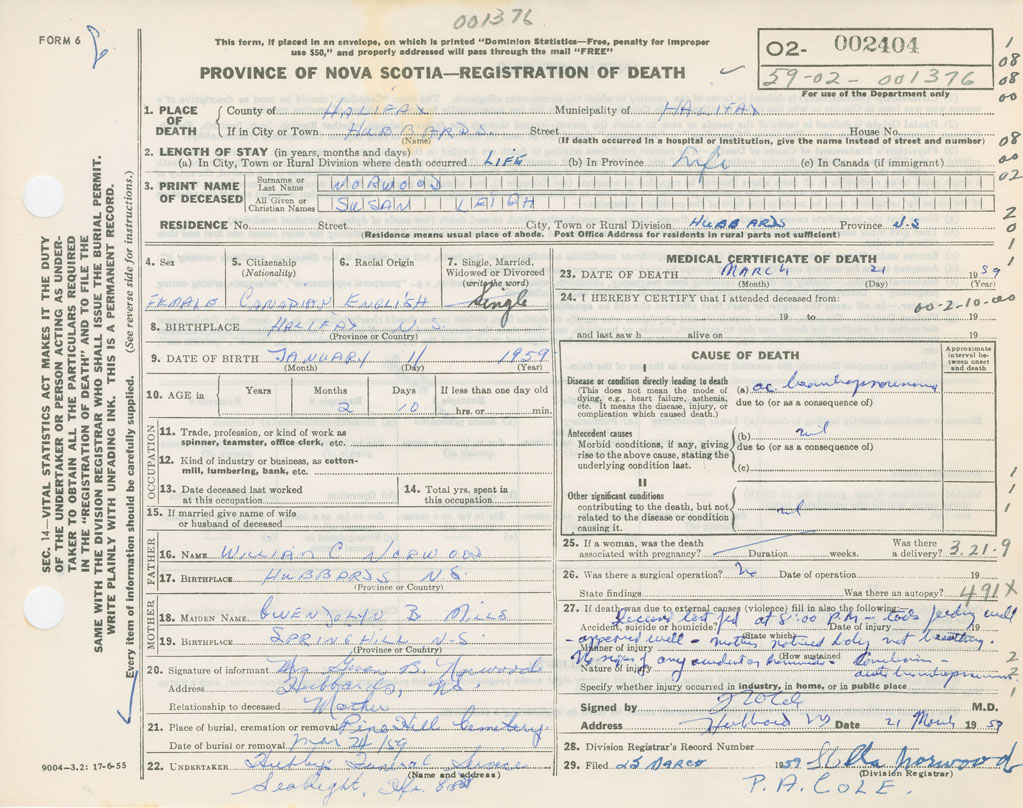 001376
FORM 6
This form, if placed in an envelope, on which is printed "Dominion Statistics—Free, penalty for improper
use $50," and properly addressed will pass through the mail "FREE"
PROVINCE OF NOVA SCOTIA—REGISTRATION OF DEATH
02- 002404
59-02-001376
For use of the Department only
1 08 08 00
08 00 02
2 0 1 1
SEC. 14—VITAL STATISTICS ACT MAKES IT THE DUTY
OF THE UNDERTAKER OR PERSON ACTING AS UNDER-
TAKER TO OBTAIN ALL THE PARTICULARS REQUIRED
IN THE "REGISTRATION OF DEATH" AND FILE THE
SAME WITH THE DIVISION REGISTRAR WHO SHALL ISSUE THE BURIAL PERMIT.
WRITE PLAINLY WITH UNFADING INK. THIS IS A PERMANENT RECORD.
Every item of information should be carefully supplied. (See reverse side for instructions.)
1. PLACE OF DEATH County of HALIFAX Municipality of HALIFAX
If in City or Town HUBBARDS Street House No.
(Name) (If death occurred in a hospital or institution, give the name instead of street and number)
2. LENGTH OF STAY (in years, months and days)
(a) In City, Town or Rural Division where death occurred LIFE (b) In Province Life (c) In Canada (if immigrant)
3. PRINT NAME OF DECEASED Surname or Last Name NORWOOD
All Given or Christian Names SUSAN LEIGH
RESIDENCE No. Street City, Town or Rural Division HUBBARDS Province N.S
(Residence means usual place of abode. Post Office Address for residents in rural parts not sufficient)
4. Sex 5. Citizenship (Nationality) 6. Racial Origin 7. Single, Married, Widowed or Divorced (write the word)
FEMALE CANADIAN ENGLISH Single
8. BIRTHPLACE HALIFAX N.S.
(Province or Country)
9. DATE OF BIRTH JANUARY 11 1959
(Month) (Day) (Year)
10. AGE in Years Months Days If less than one day old
2 10 hrs. or min.
OCCUPATION
11. Trade, profession, or kind of work as spinner, teamster, office clerk, etc.
12. Kind of industry or business, as cotton-mill, lumbering, bank, etc.
13. Date deceased last worked at this occupation 14. Total yrs. spent in this occupation
15. If married give name of wife or husband of deceased
FATHER
16. NAME WILLIAM C NORWOOD
17. BIRTHPLACE HUBBARDS N.S.
(Province or Country)
MOTHER
18. MAIDEN NAME GWENDOLYN B MILLS
19. BIRTHPLACE SPRINGHILL N.S.
(Province or Country)
20. Signature of informant Mrs Gwen B. Norwood
Address Hubbards, N.S.
Relationship to deceased Mother
21. Place of burial, cremation or removal Pine Hill Cemetery
Date of burial or removal Mar 24/59
22. UNDERTAKER Hubleys Funeral Service
(Name and address)
Seabright, Hfx
9004—3.2: 17-6-55
MEDICAL CERTIFICATE OF DEATH
23. DATE OF DEATH MARCH 21 1959
(Month) (Day) (Year)
24. I HEREBY CERTIFY that I attended deceased from: 00-2-10-00
19 to 19
and last saw h alive on 19
CAUSE OF DEATH
Approximate interval between onset and death
I
Disease or condition directly leading to death
(This does not mean the mode of dying, e.g., heart failure, asthenia, etc. It means the disease, injury, or complication which caused death.)
(a) ac. bronchopneumonia
due to (or as a consequence of)
Antecedent causes
Morbid conditions, if any, giving rise to the above cause, stating the underlying condition last.
(b) nil
due to (or as a consequence of)
(c)
II
Other significant conditions
contributing to the death, but not related to the disease or condition causing it. nil
25. If a woman, was the death associated with pregnancy? Duration weeks. Was there a delivery? 3.21.9
26. Was there a surgical operation? No Date of operation 19
State findings Was there an autopsy? 491X
27. If death was due to external causes (violence) fill in also the following:
Deceased last fed at 8:00 P.M - took feeding well
Accident, suicide or homicide? Date of injury 19
(State which)
- appeared well - mother noticed baby not breathing.
Manner of injury
(How sustained)
No signs of any accident or homicide - Conclusion -
Nature of injury acute bronchopneumonia
Specify whether injury occurred in industry, in home, or in public place
Signed by M.D.
Address Hubbards NS Date 21 March 1959
28. Division Registrar's Record Number
29. Filed 25 MARCH 1959 Stella Norwood
(Division Registrar)
P.A. COLE.